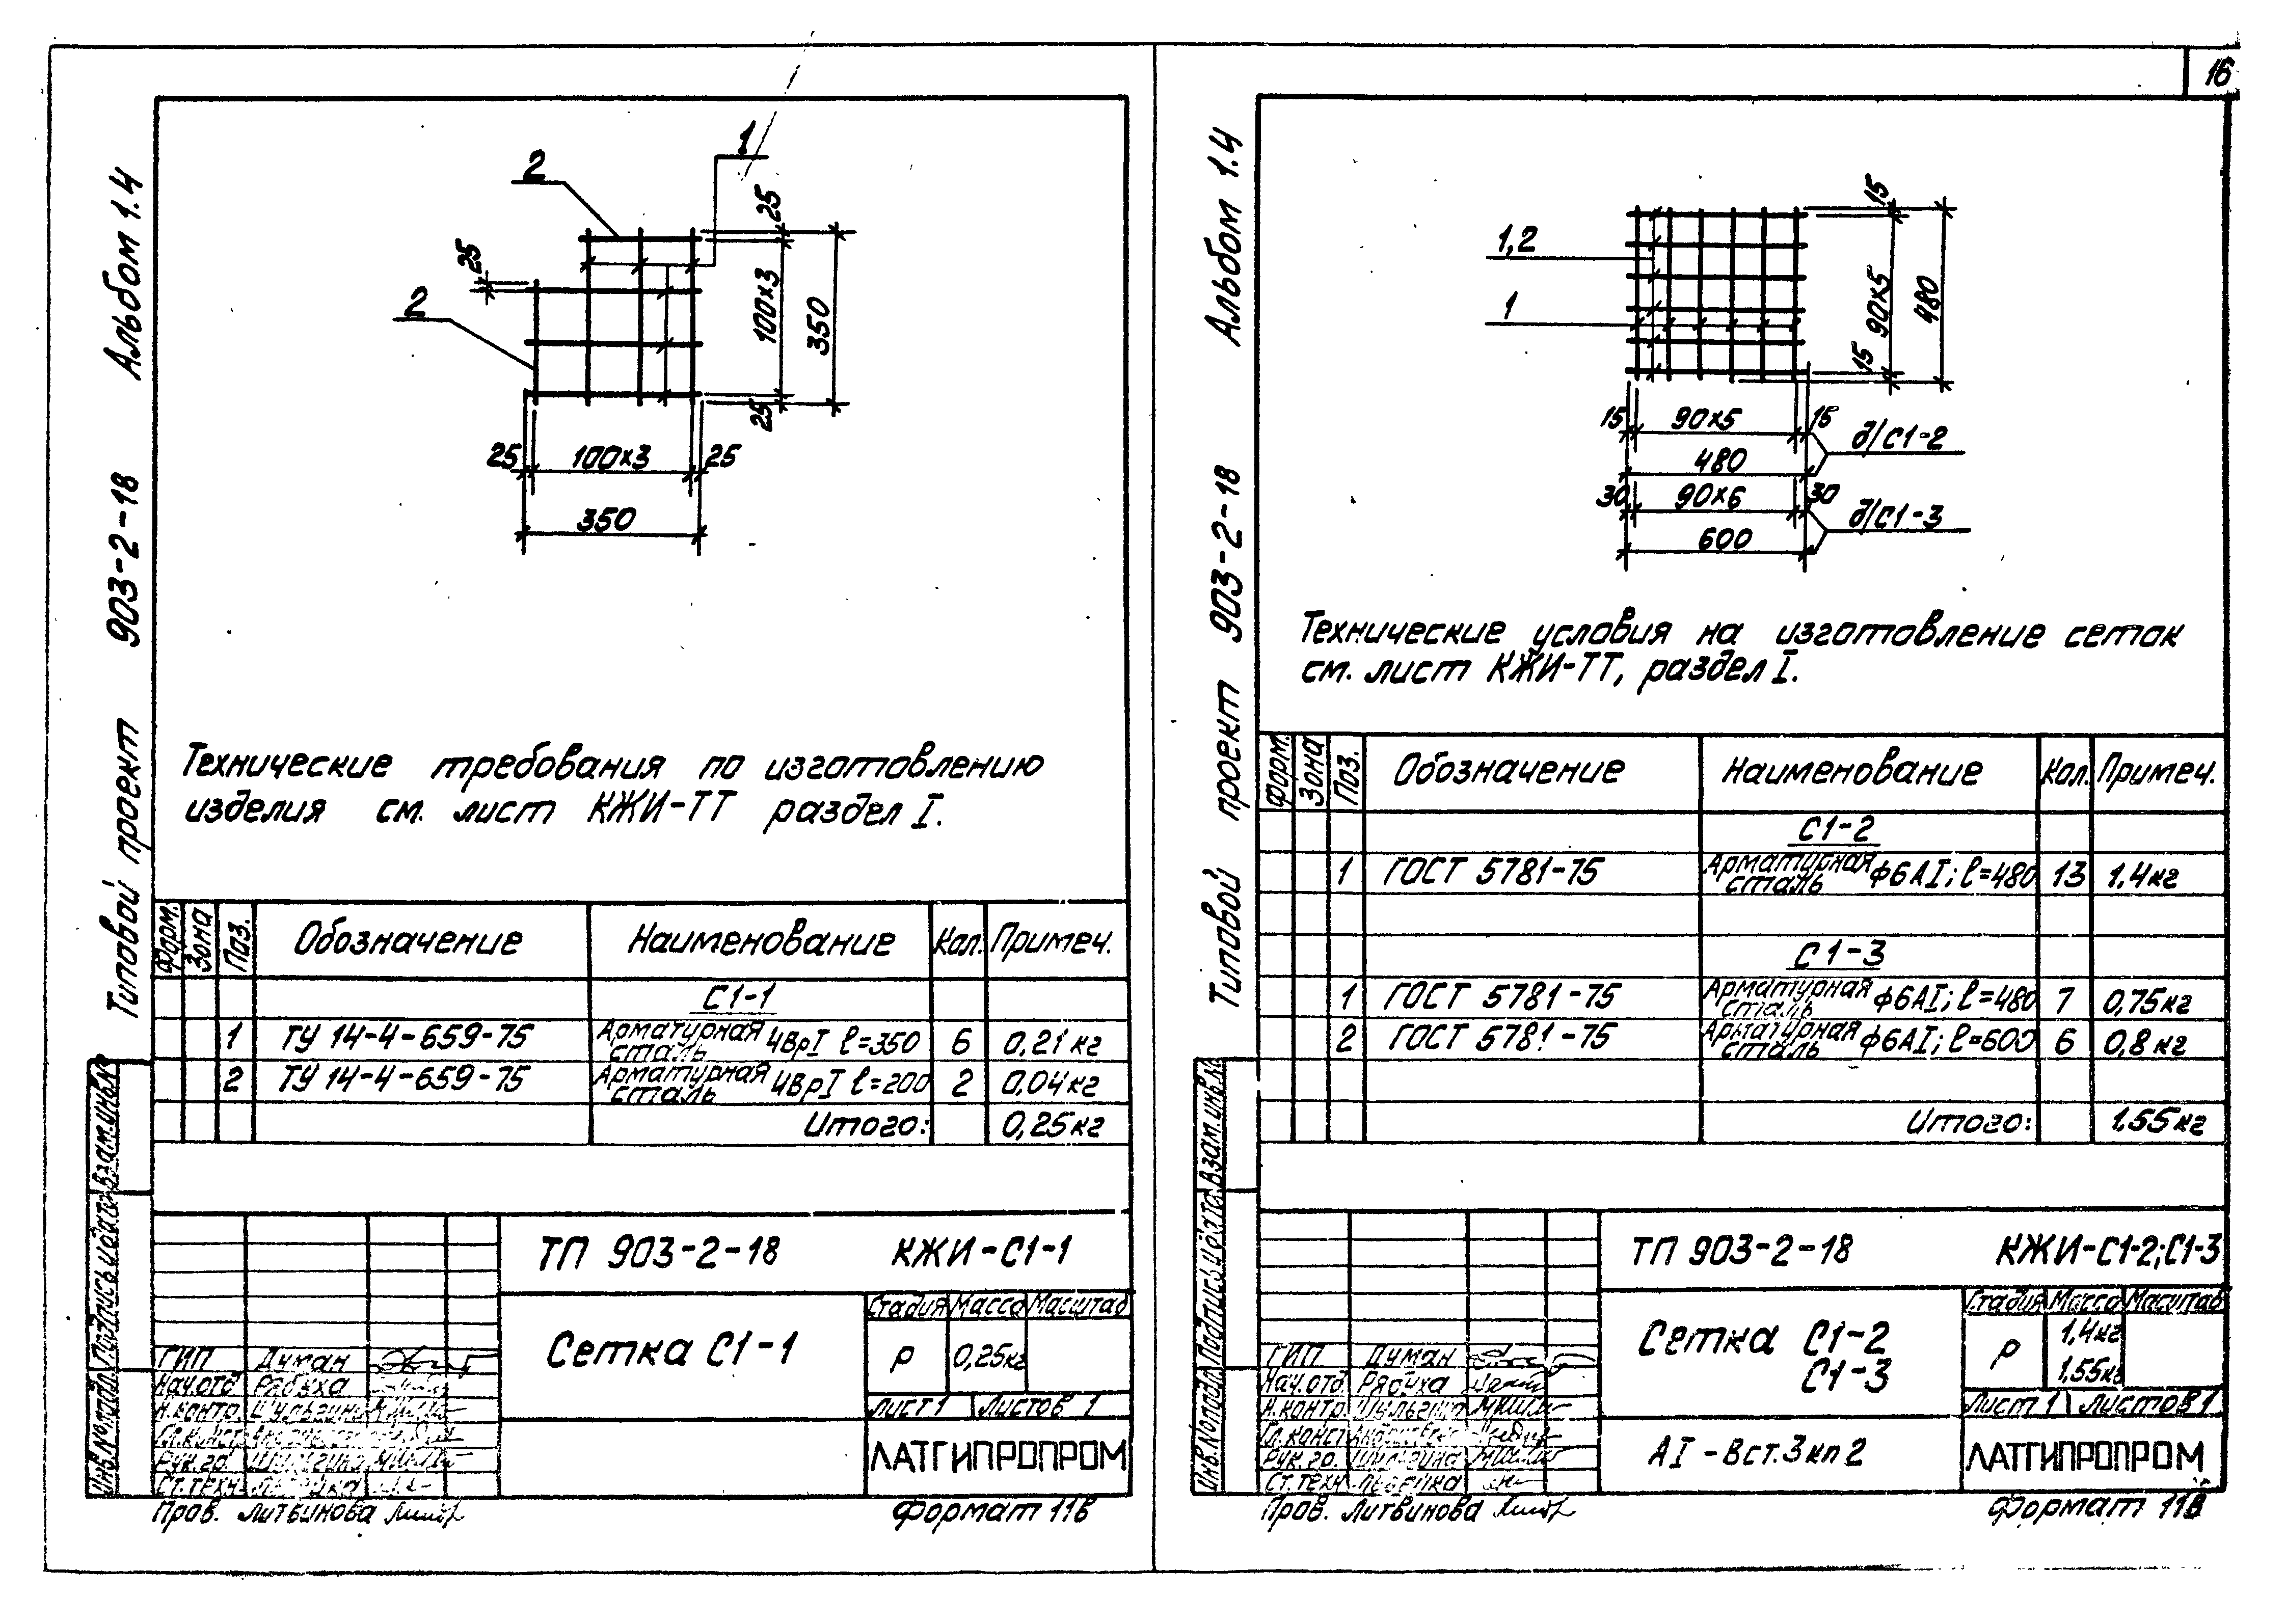 16
Альбом 1.4
Типовой проект 903-2-18
1
2
25
25
2
100х3
350
25
25
100х3
25
350
Технические требования по изготовлению
изделия см. лист КЖИ-ТТ раздел I.
Форм.
Зона
Поз.
Обозначение
Наименование
Кол.
Примеч.
С1-1
1 ТУ 14-4-659-75 Арматурная сталь 4ВрI ℓ=350 6 0,21кг
2 ТУ 14-4-659-75 Арматурная сталь 4ВрI ℓ=200 2 0,04кг
Итого: 0,25кг
Взам.инв.№
Подпись и дата
Инв.№ подл.
ТП 903-2-18 КЖИ-С1-1
Сетка С1-1
Стадия Масса Масштаб
Р 0,25кг
Лист 1 Листов 1
ЛАТГИПРОПРОМ
ГИП Думан
Нач.отд Рябуха
Н.контр. Шульгина
Гл.конст.
Рук.гр. Шульгина
Ст.техн.
Пров. Литвинова
Формат 11В
Альбом 1.4
Типовой проект 903-2-18
15
1,2
90х5
480
1
15
15 90х5 15
д/С1-2
480
30 90х6 30
д/С1-3
600
Технические условия на изготовление сеток
см. лист КЖИ-ТТ, раздел I.
Форм.
Зона
Поз.
Обозначение
Наименование
Кол.
Примеч.
С1-2
1 ГОСТ 5781-75 Арматурная сталь ф6АI; ℓ=480 13 1.4кг
С1-3
1 ГОСТ 5781-75 Арматурная сталь ф6АI; ℓ=480 7 0,75кг
2 ГОСТ 5781-75 Арматурная сталь ф6АI; ℓ=600 6 0,8кг
Итого: 1.55кг
Взам.инв.№
Подпись и дата
Инв.№ подл.
ТП 903-2-18 КЖИ-С1-2;С1-3
Сетка С1-2
С1-3
Стадия Масса Масштаб
Р 1,4кг
1,55кг
Лист 1 Листов 1
АI - Вст.3 кп 2
ЛАТГИПРОПРОМ
ГИП Думан
Нач.отд. Рябуха
Н.контр. Шульгина
Гл.конст
Рук.гр. Шульгина
Ст.техн.
Пров. Литвинова
Формат 11В